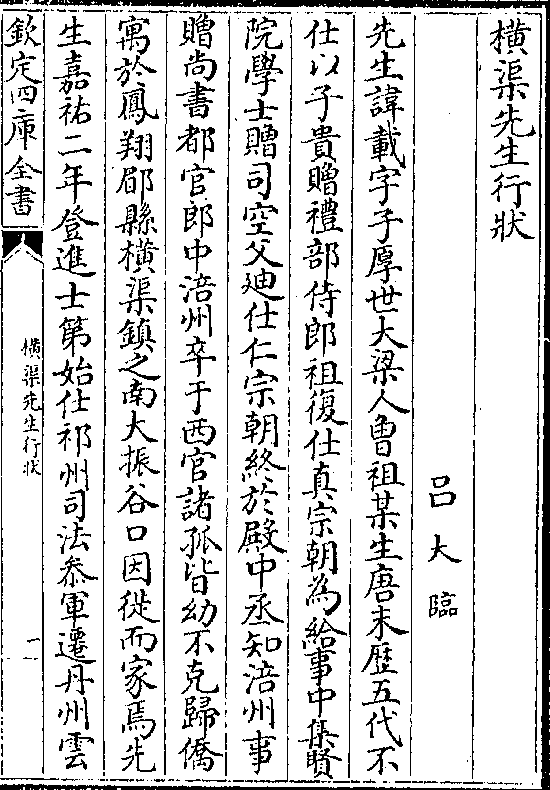 橫渠先生行狀
呂大臨
先生諱載字子厚世大梁人曾祖某生唐末歷五代不
仕以子貴贈禮部侍郎祖復仕真宗朝為給事中集賢
院學士贈司空父廸仕仁宗朝終於殿中丞知涪州事
贈尚書都官郎中涪州卒于西官諸孤皆幼不克歸僑
寓於鳳翔郿縣橫渠鎮之南大振谷口因徙而家焉先
生嘉祐二年登進士第始仕祁州司法叅軍遷丹州雲
欽定四庫全書
橫渠先生行狀
一